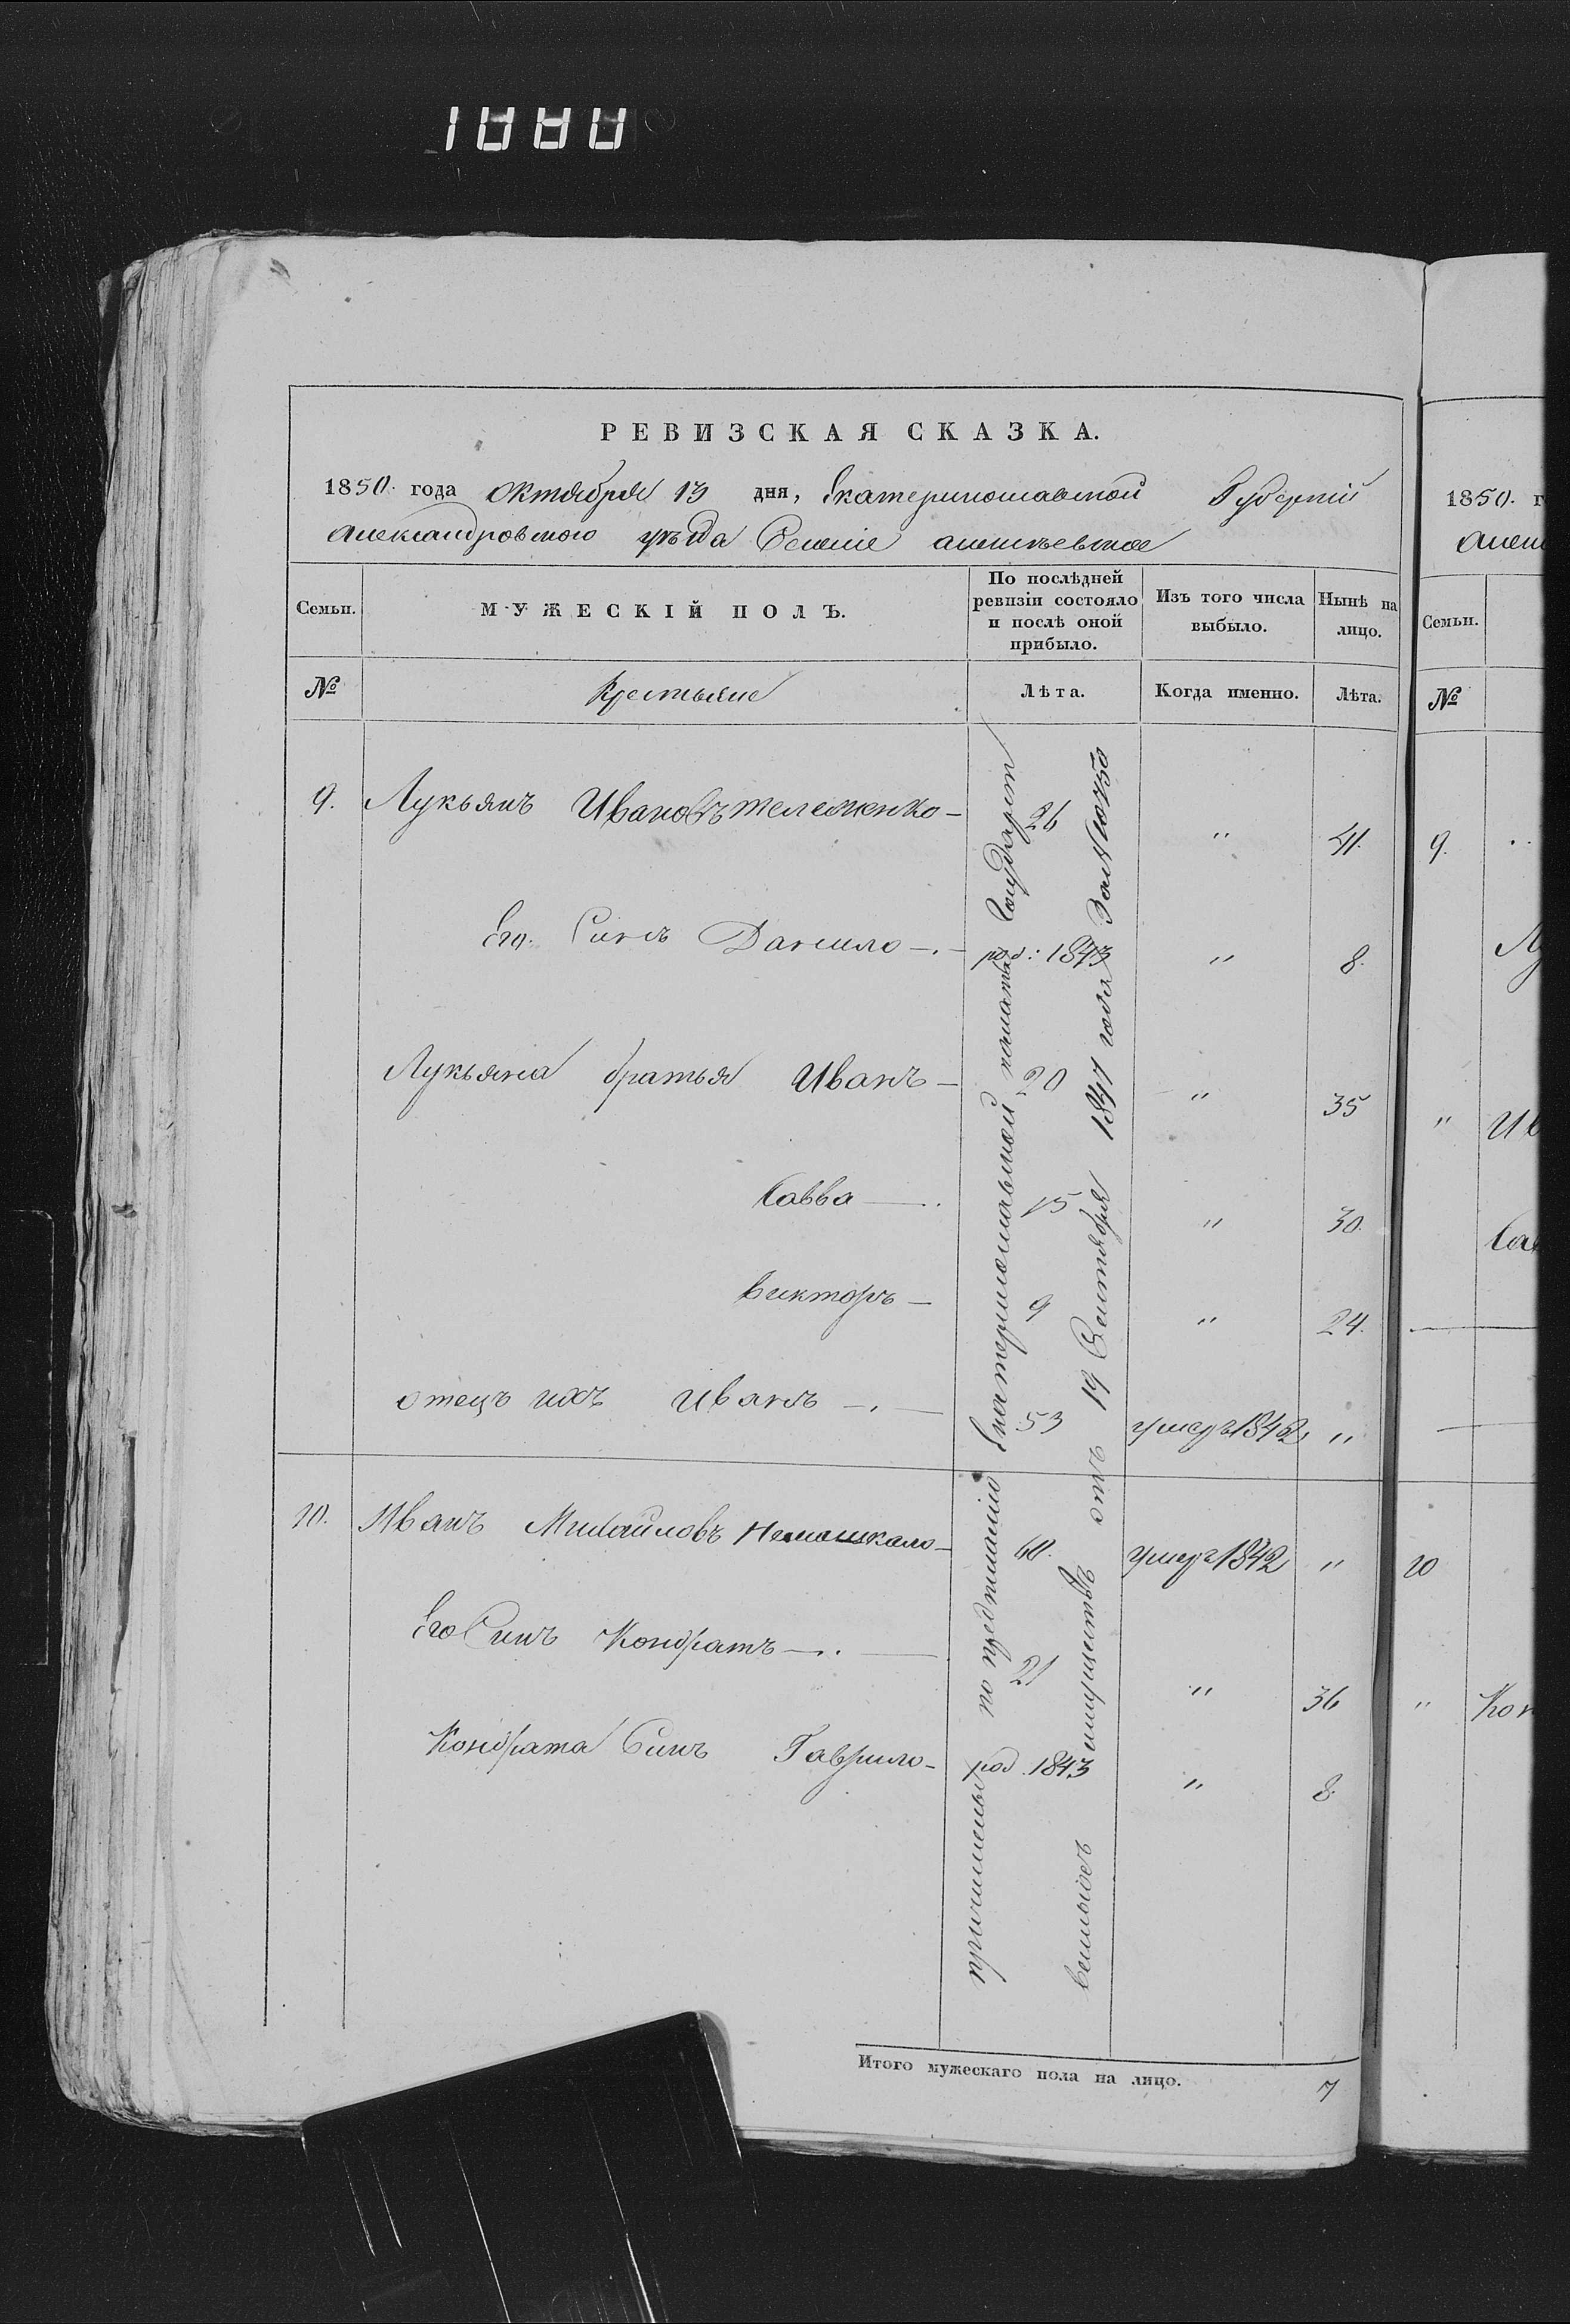 РЕВИЗСКАЯ СКАЗКА.
1850. года Октября 13 дня, Екатеринославской Губерніи
Александровского уѣзда Селеніе
Семьи. МУЖЕСКІЙ ПОЛЪ. По послѣдней ревизіи состояло и послѣ оной прибыло. Изъ того числа выбыло. Нынѣ на лицо.
№ Крестьяне Лѣта. Когда именно. Лѣта.
9. Лукьянъ Ивановъ Тележенко — 26 " 41.
Его Синъ Данило — род: 1843 " 8.
Лукьяна братья Иванъ — 20 " 35
Савва — 15 " 30.
Викторъ — 9 " 24.
отецъ ихъ Иванъ — 53 умеръ 1842 "
10. Иванъ Михайловъ — 60. умеръ 1842 "
Его Синъ Кондратъ — 21 " 36
Кондрата Синъ Гаврило — род. 1843 " 8.
причислены по предписанію Екатеринославской палаты Государст
венныхъ имуществъ отъ 19 Сентября 1847 года за № 10750
Итого мужескаго пола на лицо. 7
1850. г
Семьи.
№
9.
" Ив
Сав
10
" Кон